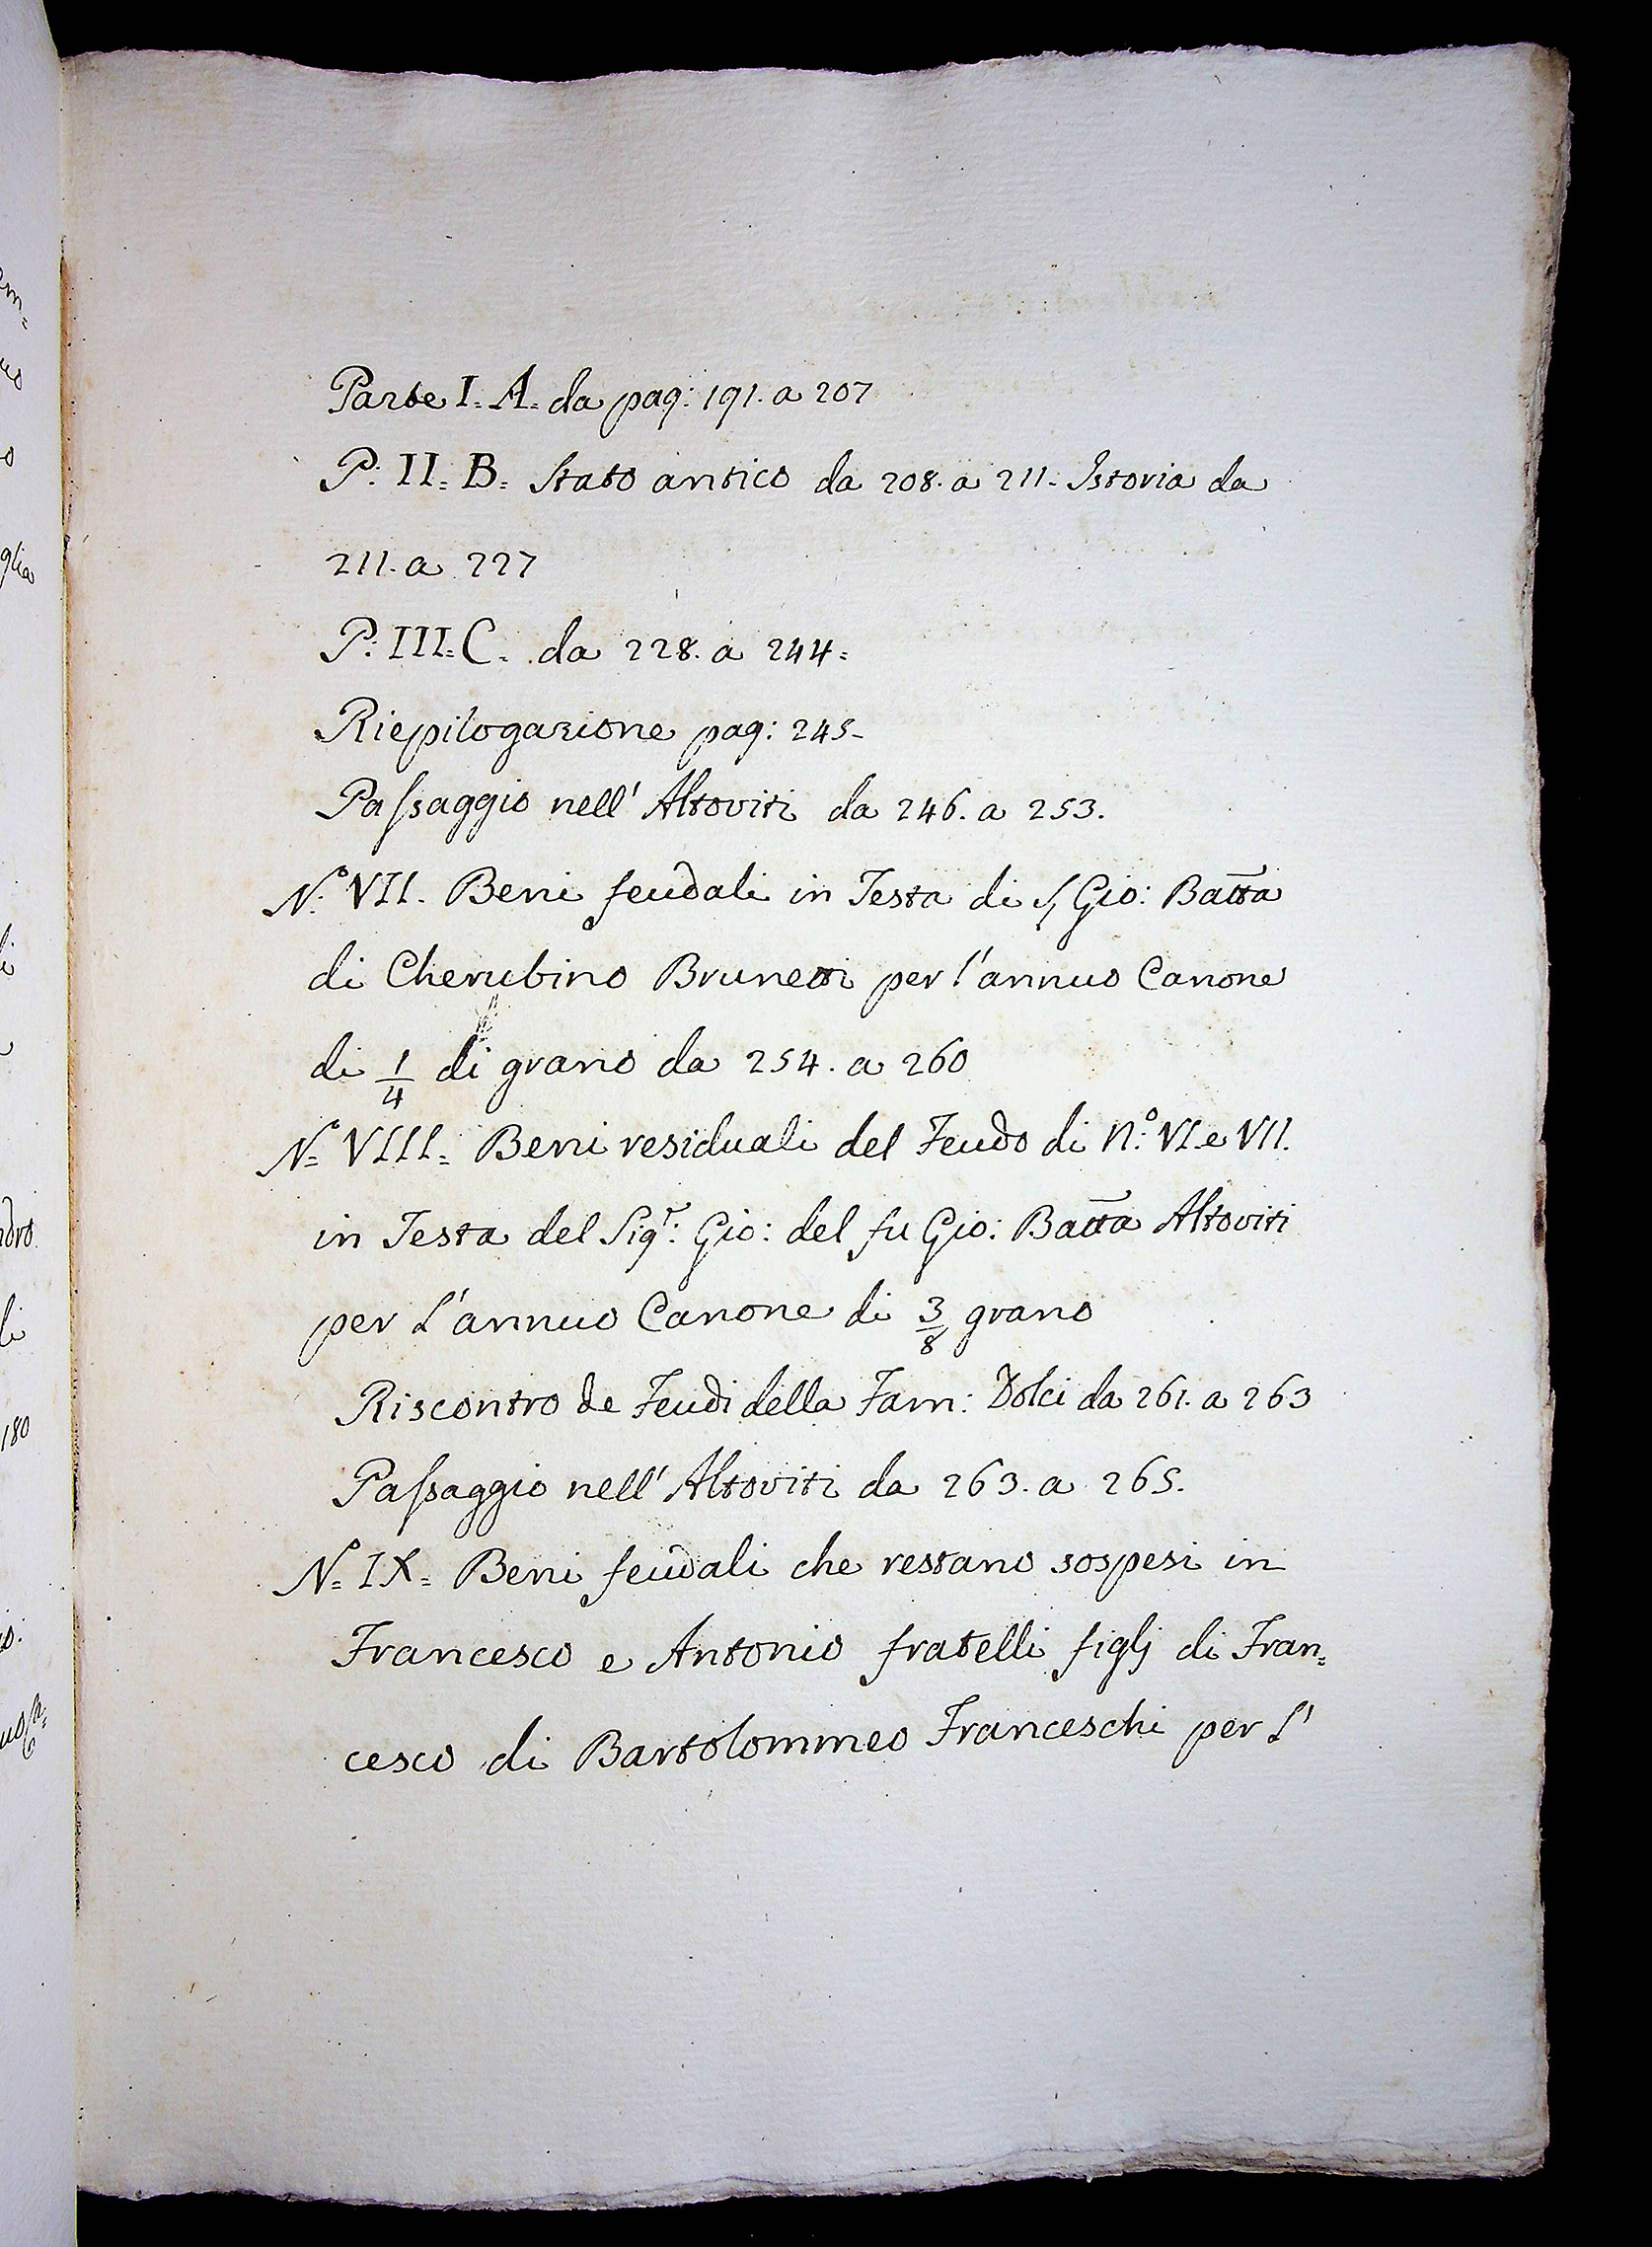 Parte I. A. da pag: 191. a 207
P: II. B. Stato antico da 208. a 211. Istoria da
211. a 227
P: III. C. da 228. a 244.
Riepilogazione pag: 245.
Passaggio nell' Altoviti da 246. a 253.
N:° VII. Beni feudali in Testa di S Gio: Batta
di Cherubino Brunetti per l'annuo Canone
di 1/4 di grano da 254. a 260
N° VIII. Beni residuali del Feudo di N:° VI e VII.
in Testa del Sigr: Gio: del fu Gio: Batta Altoviti
per L'annuo Canone di 3/8 grano
Riscontro de Feudi della Fam: Dolci da 261. a 263
Passaggio nell' Altoviti da 263. a 265.
N° IX. Beni feudali che restano sospesi in
Francesco e Antonio fratelli figlj di Fran=
cesco di Bartolommeo Franceschi per L'